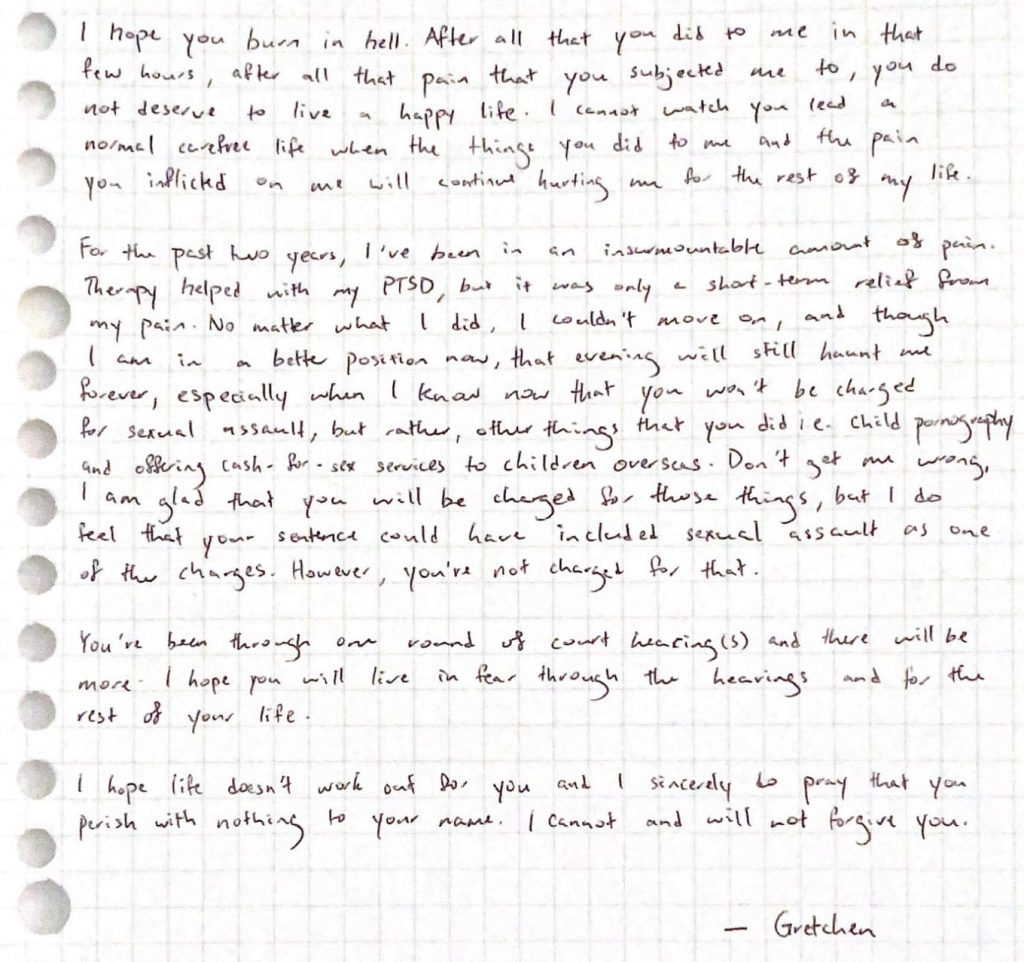 I hope you burn in hell. After all that you did to me in that
few hours, after all that pain that you subjected me to, you do
not deserve to live a happy life. I cannot watch you lead a
normal carefree life when the things you did to me and the pain
you inflicted on me will continue hurting me for the rest of my life.

For the past two years, I've been in an insurmountable amount of pain.
Therapy helped with my PTSD, but it was only a short-term relief from
my pain. No matter what I did, I couldn't move on, and though
I am in a better position now, that evening will still haunt me
forever, especially when I know now that you won't be charged
for sexual assault, but rather, other things that you did i.e. child pornography
and offering cash-for-sex services to children overseas. Don't get me wrong,
I am glad that you will be charged for those things, but I do
feel that your sentence could have included sexual assault as one
of the charges. However, you're not charged for that.

You've been through one round of court hearing(s) and there will be
more. I hope you will live in fear through the hearings and for the
rest of your life.

I hope life doesn't work out for you and I sincerely do pray that you
perish with nothing to your name. I cannot and will not forgive you.

— Gretchen